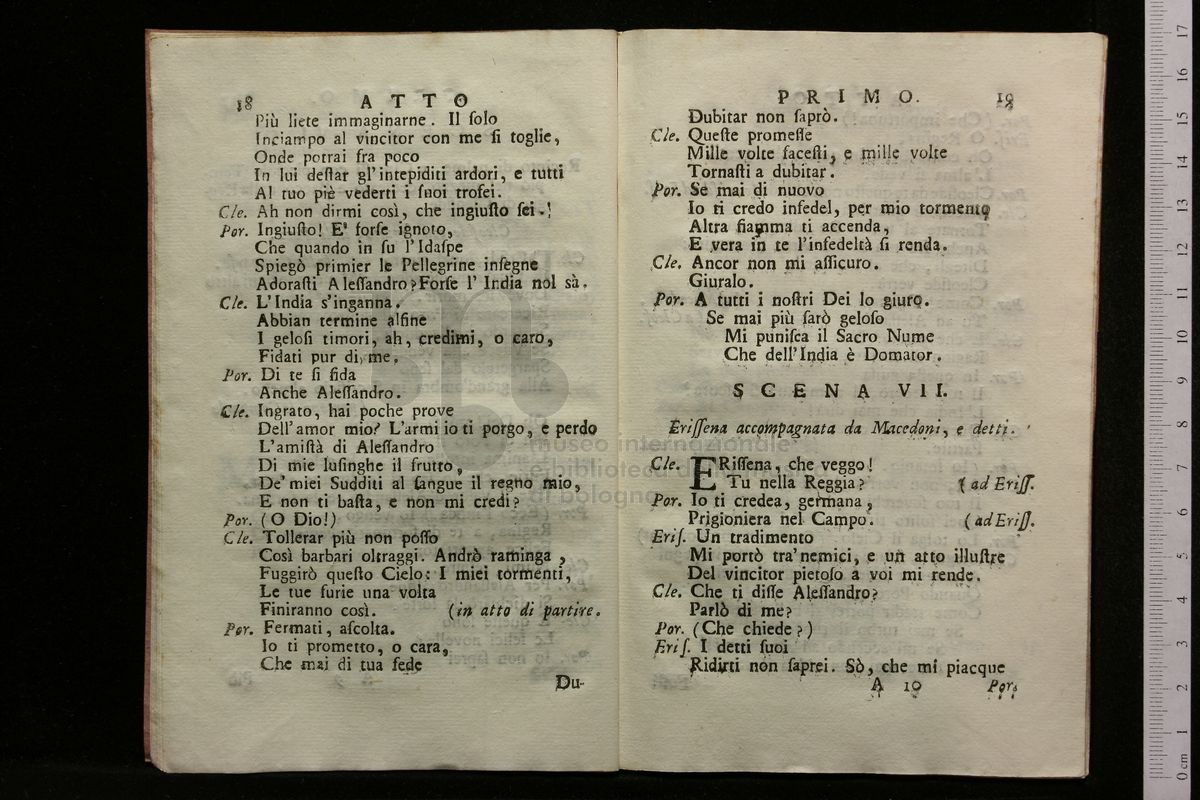 18 ATTO
Più liete immaginarne. Il ſolo
Inciampo al vincitor con me ſi toglie,
Onde potrai fra poco
In lui deſtar gl'intepiditi ardori, e tutti
Al tuo piè vederti i ſuoi trofei.
Cle. Ah non dirmi così, che ingiuſto ſei.!
Por. Ingiuſto! E' forſe ignoto,
Che quando in ſu l'Idaſpe
Spiegò primier le Pellegrine inſegne
Adoraſti Aleſſandro? Forſe l' India nol sà.
Cle. L'India s'inganna.
Abbian termine alfine
I geloſi timori, ah, credimi, o caro,
Fidati pur di me.
Por. Di te ſi fida
Anche Aleſſandro.
Cle. Ingrato, hai poche prove
Dell'amor mio? L'armi io ti porgo, e perdo
L'amiſtà di Aleſſandro
Di mie luſinghe il frutto,
De'miei Sudditi al ſangue il regno mio,
E non ti baſta, e non mi credi?
Por. (O Dio!)
Cle. Tollerar più non poſſo
Così barbari oltraggi. Andrò raminga,
Fuggirò queſto Cielo: I miei tormenti,
Le tue furie una volta
Finiranno così. (in atto di partire.
Por. Fermati, aſcolta.
Io ti prometto, o cara,
Che mai di tua fede
Du-
PRIMO. 19
Dubitar non ſaprò.
Cle. Queſte promeſſe
Mille volte faceſti, e mille volte
Tornaſti a dubitar.
Por. Se mai di nuovo
Io ti credo infedel, per mio tormento
Altra fiamma ti accenda,
E vera in te l'infedeltà ſi renda.
Cle. Ancor non mi aſſicuro.
Giuralo.
Por. A tutti i noſtri Dei lo giuro.
Se mai più ſarò geloſo
Mi puniſca il Sacro Nume
Che dell'India è Domator.
SCENA VII.
Eriſſena accompagnata da Macedoni, e detti.
Cle. ERiſſena, che veggo!
Tu nella Reggia? (ad Eriſſ.
Por. Io ti credea, germana,
Prigioniera nel Campo. (ad Eriſſ.
Eriſ. Un tradimento
Mi portò tra'nemici, e un atto illuſtre
Del vincitor pietoſo a voi mi rende.
Cle. Che ti diſſe Aleſſandro?
Parlò di me?
Por. (Che chiede?)
Eriſ. I detti ſuoi
Ridirti non ſaprei. Sò, che mi piacque
A 10 Por.
museo internazionale
e biblioteca della musica
di bologna
0 cm 1 2 3 4 5 6 7 8 9 10 11 12 13 14 15 16 17